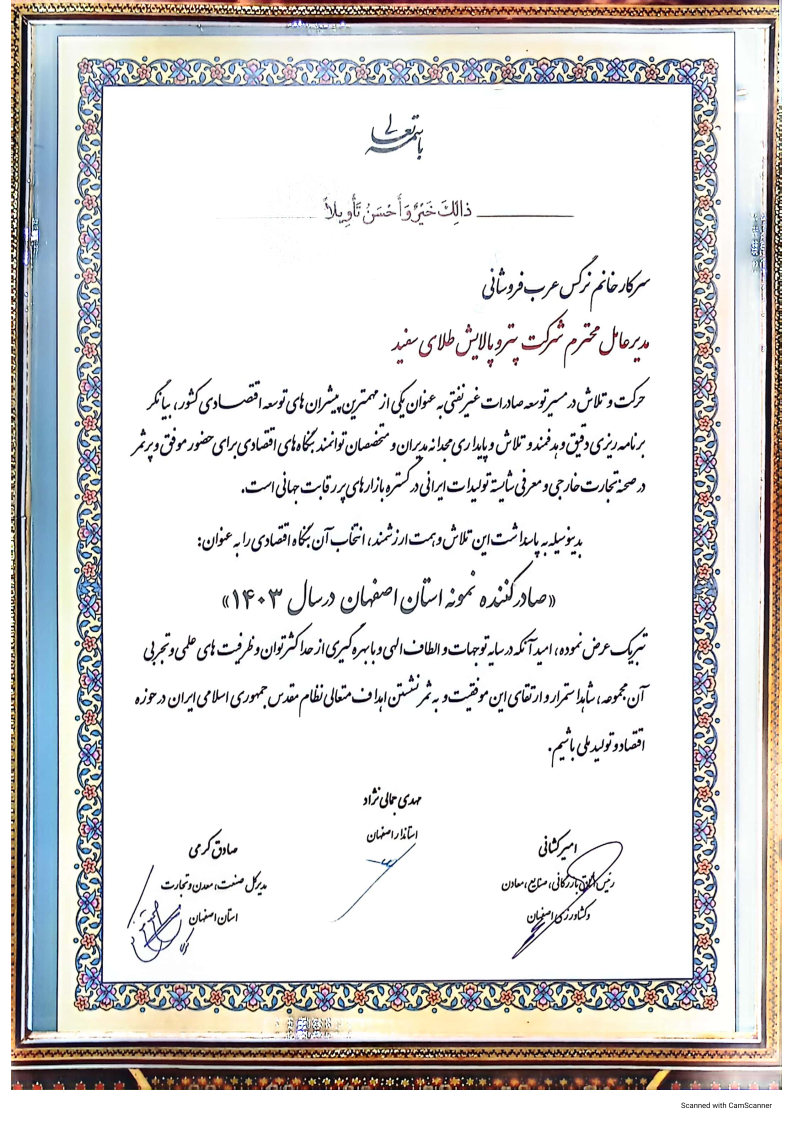 باسمه تعالی
ذالِكَ خَيْرٌ وَأَحْسَنُ تَأْوِيلاً
سرکار خانم نرگس عرب فروشانی
مدیرعامل محترم شرکت پترو پالایش طلای سفید
حرکت و تلاش در مسیر توسعه صادرات غیرنفتی به عنوان یکی از مهمترین پیشران های توسعه اقتصادی کشور، بیانگر
برنامه ریزی دقیق و هدفمند و تلاش و پایداری مجدانه مدیران و متخصصان توانمند بنگاه های اقتصادی برای حضور موفق و پرثمر
در صحنه تجارت خارجی و معرفی شایسته تولیدات ایرانی در گستره بازارهای پر رقابت جهانی است.
بدینوسیله به پاسداشت این تلاش و همت ارزشمند، انتخاب آن بنگاه اقتصادی را به عنوان:
«صادرکننده نمونه استان اصفهان در سال ۱۴۰۳»
تبریک عرض نموده، امید آنکه در سایه توجهات و الطاف الهی و با بهره گیری از حداکثر توان و ظرفیت های علمی و تجربی
آن مجموعه، شاهد استمرار و ارتقای این موفقیت و به ثمر نشستن اهداف متعالی نظام مقدس جمهوری اسلامی ایران در حوزه
اقتصاد و تولید ملی باشیم.
مهدی جمالی نژاد
استاندار اصفهان
امیر کشانی
رئیس اتاق بازرگانی، صنایع، معادن
و کشاورزی اصفهان
صادق کرمی
مدیرکل صنعت، معدن و تجارت
استان اصفهان
Scanned with CamScanner